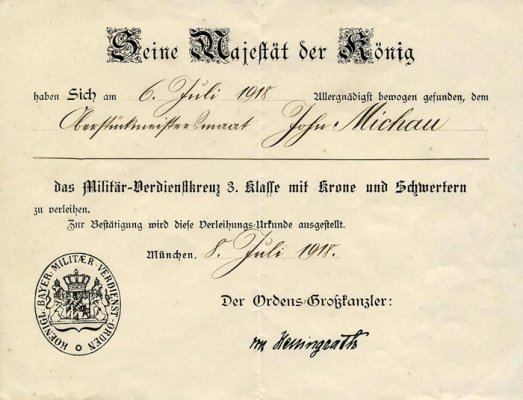 Seine Majestät der König
haben Sich am 6. Juli 1918 Allergnädigst bewogen gefunden, dem
Oberstückmeistersmaat John Michau
das Militär-Verdienstkreuz 3. Klasse mit Krone und Schwertern
zu verleihen.
Zur Bestätigung wird diese Verleihungs-Urkunde ausgestellt.
München, 8. Juli 1918.
KOENIGL. BAYER. MILITÆR-VERDIENST-ORDEN
Der Ordens-Großkanzler: